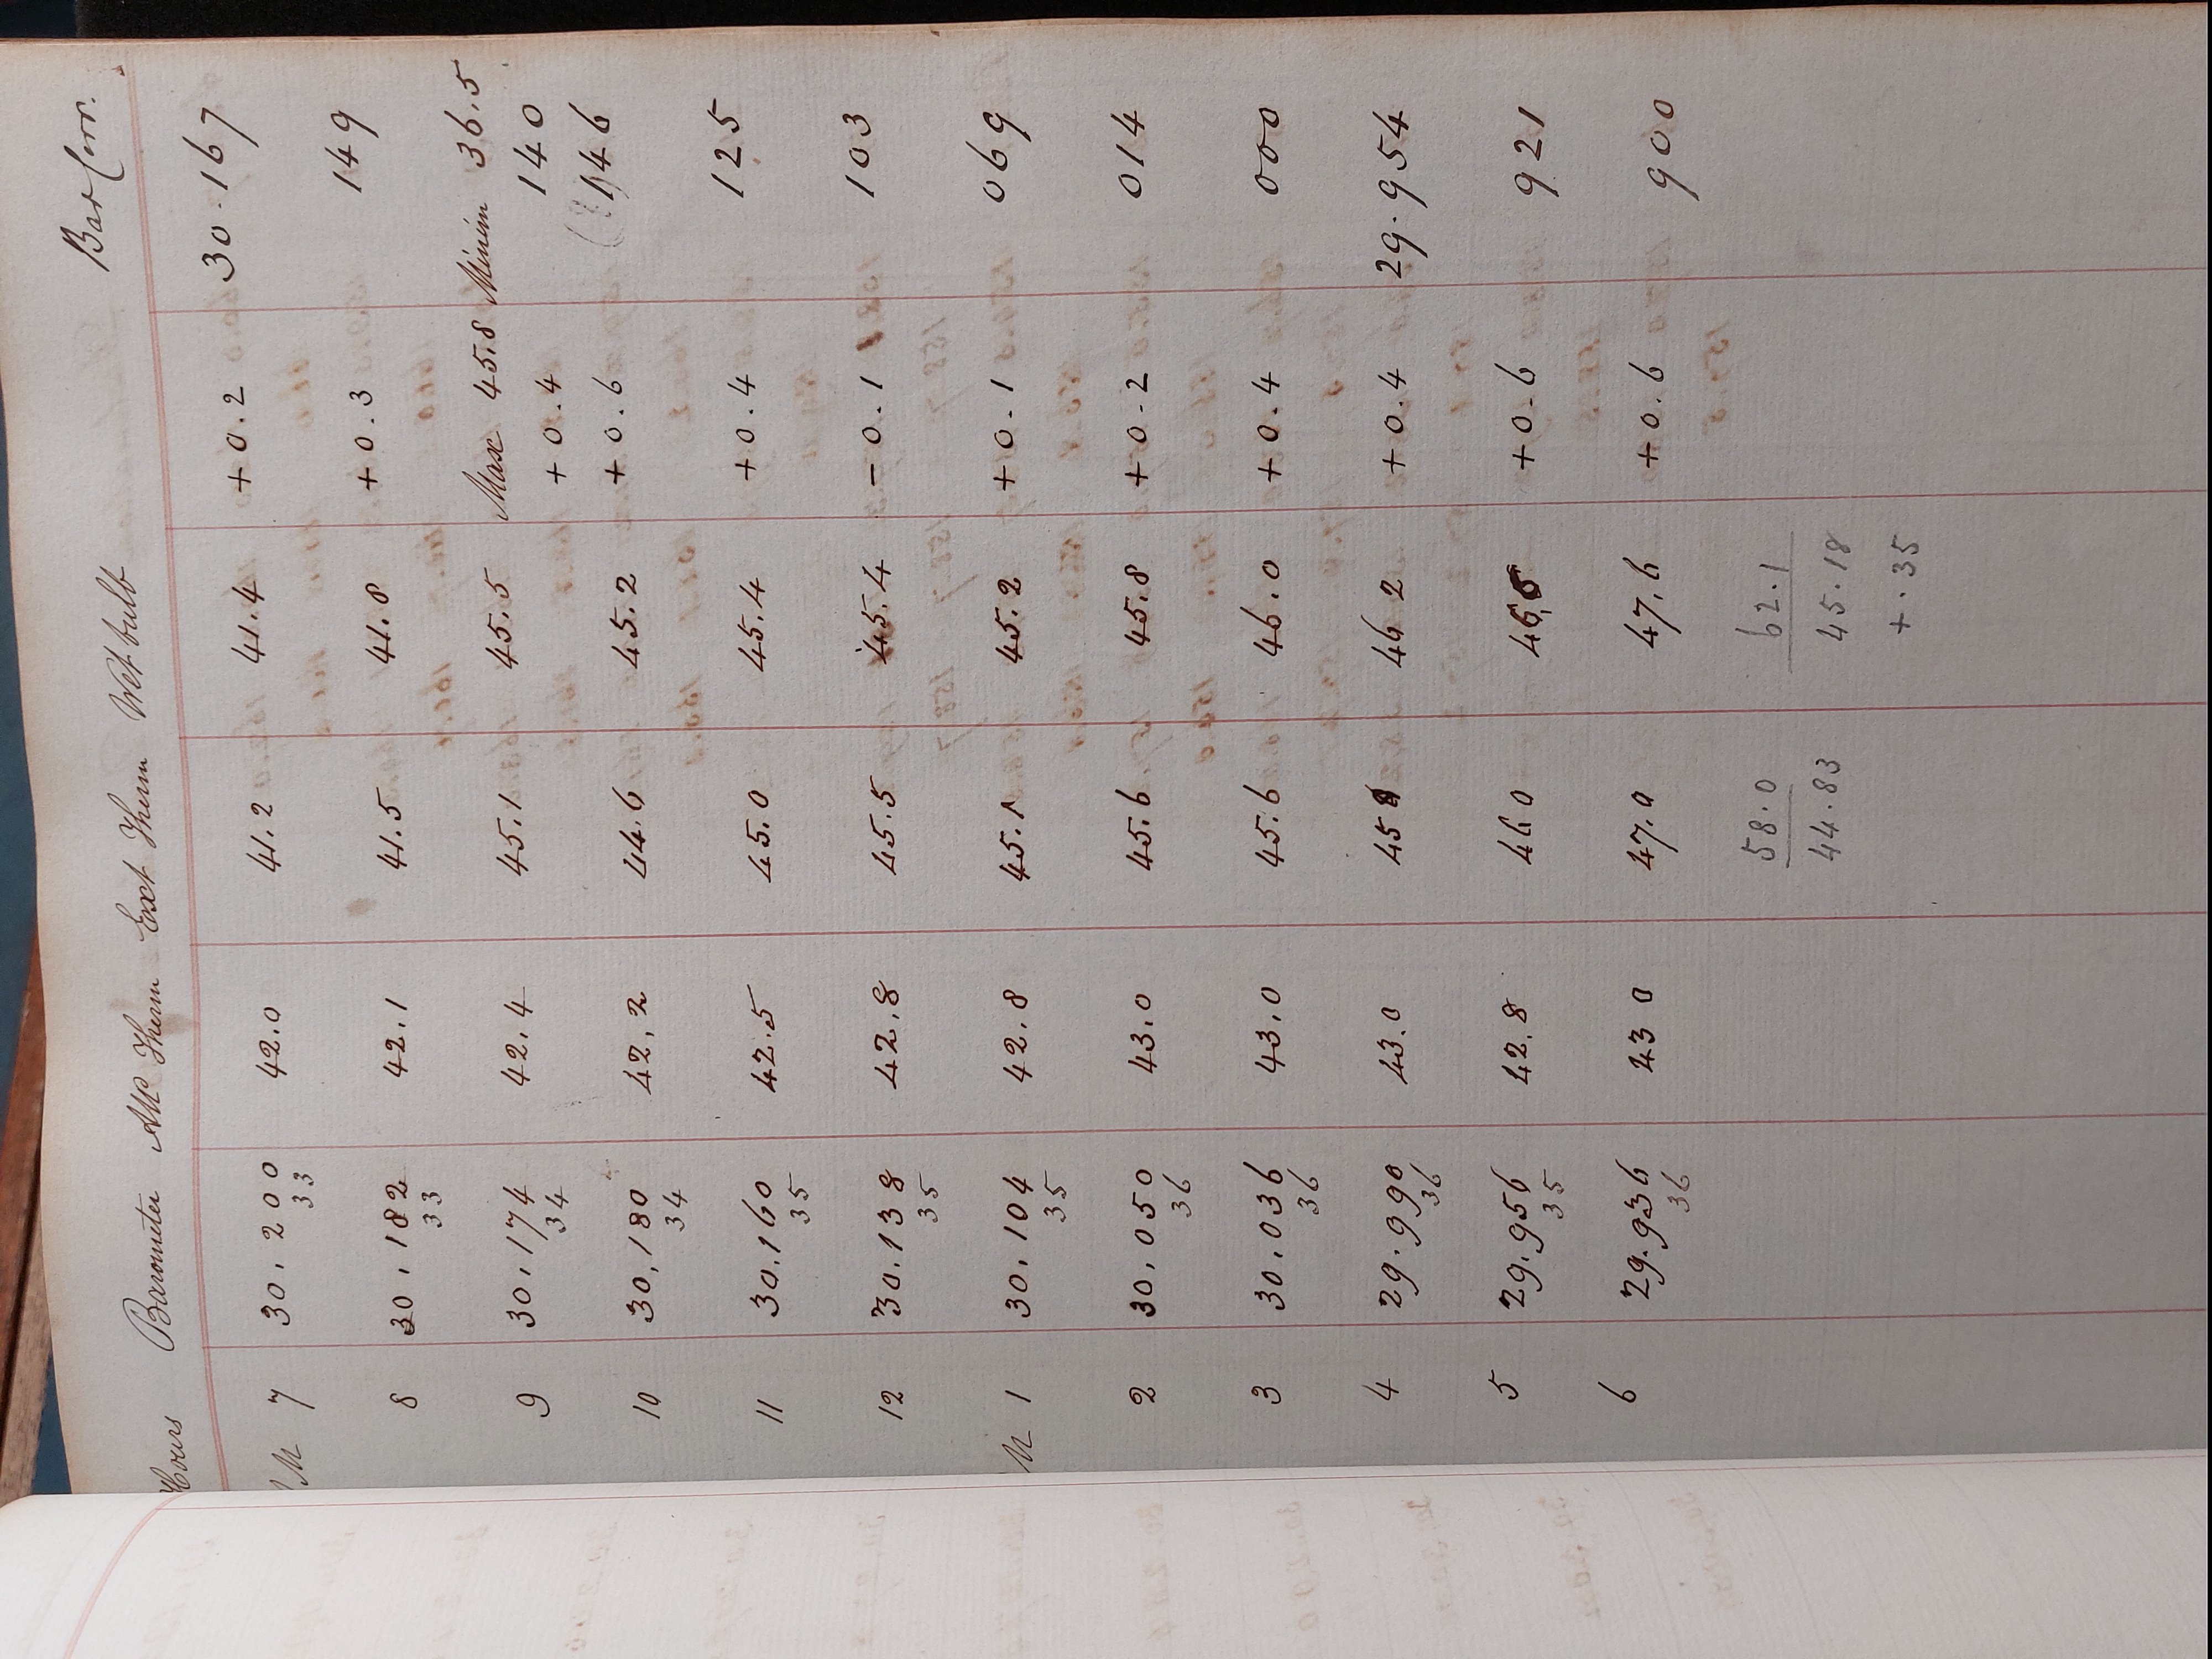 Hours Barometer Att Therm Ext Therm Wet bulb Bar Corr.
M 7 30.200 42.0 41.2 41.4 +0.2 30.167
33
8 30.182 42.1 41.5 41.8 +0.3 149
33
9 30.174 42.4 45.1 45.5 Max 45.8 Minim 36.5
34 +0.4 140
10 30.180 42.2 44.6 45.2 +0.6 146
34
11 30.160 42.5 45.0 45.4 +0.4 125
35
12 30.138 42.8 45.5 45.4 -0.1 103
35
M 1 30.104 42.8 45.1 45.2 +0.1 069
35
2 30.050 43.0 45.6 45.8 +0.2 014
36
3 30.036 43.0 45.6 46.0 +0.4 000
36
4 29.990 43.0 45 8 46 2 +0.4 29.954
36
5 29.956 42.8 46 0 46.6 +0.6 921
35
6 29.936 43 0 47.0 47.6 +0.6 900
36
58.0 62.1
44.83 45.18
+.35